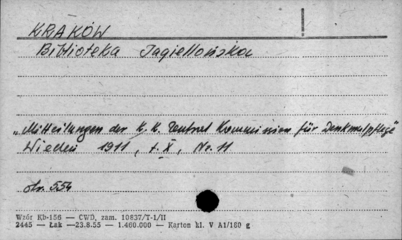 KRAKÓW
Biblioteka Jagiellońska
"Mitteilungen der K. K. Zentral Kommission für Denkmalpflege"
Wiedeń 1911, t. X, No. 11
str. 554
Wzór Kb-156 — CWD, zam. 10637/T-1/II
2445 — Łak —23.8.55 — 1.460.000 — Karton kl. V A1/160 g